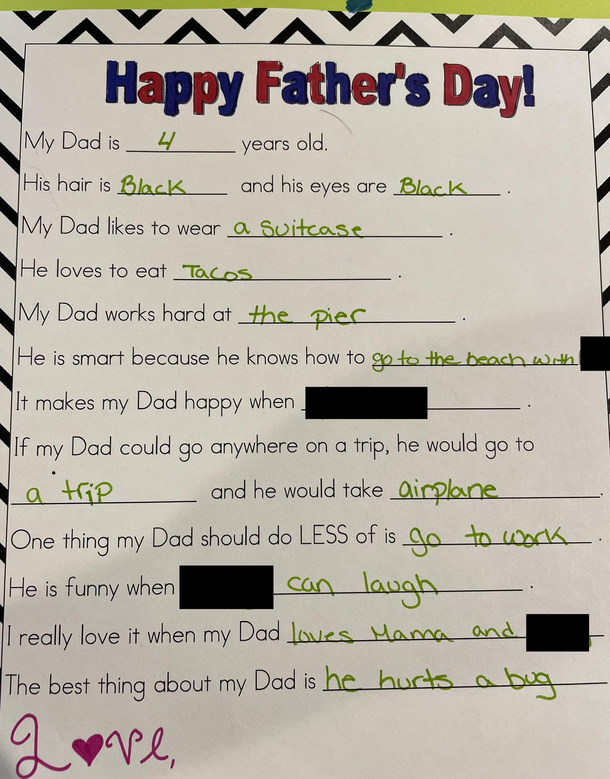 Happy Father's Day!
My Dad is 4 years old.
His hair is Black and his eyes are Black.
My Dad likes to wear a suitcase.
He loves to eat Tacos.
My Dad works hard at the pier.
He is smart because he knows how to go to the beach with
It makes my Dad happy when .
If my Dad could go anywhere on a trip, he would go to
a trip and he would take airplane.
One thing my Dad should do LESS of is go to work.
He is funny when can laugh.
I really love it when my Dad loves Mama and
The best thing about my Dad is he hurts a bug
Love,